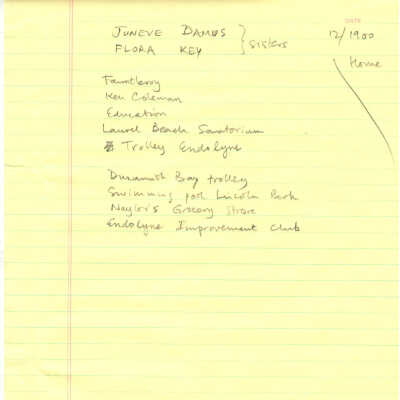 DATE
JUNEVE DAMUS
FLORA KEY
} Sisters
12/1900
Home
Fauntleroy
Ken Coleman
Education
Laurel Beach Sanatorium
Trolley Endolyne
Bay trolley
Swimming pool Lincoln Park
Naylor's Grocery Store
Endolyne Improvement Club